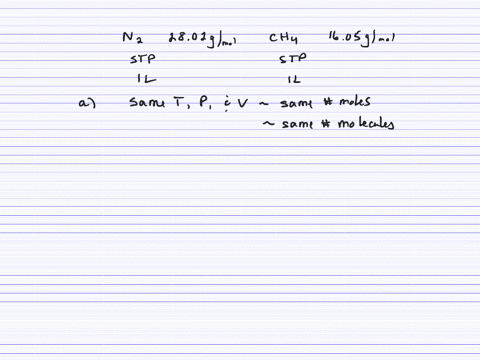 N2 28.02g/mol CH4 16.05g/mol
STP STP
1L 1L
a) Same T, P, & V ~ same # moles
~ same # molecules